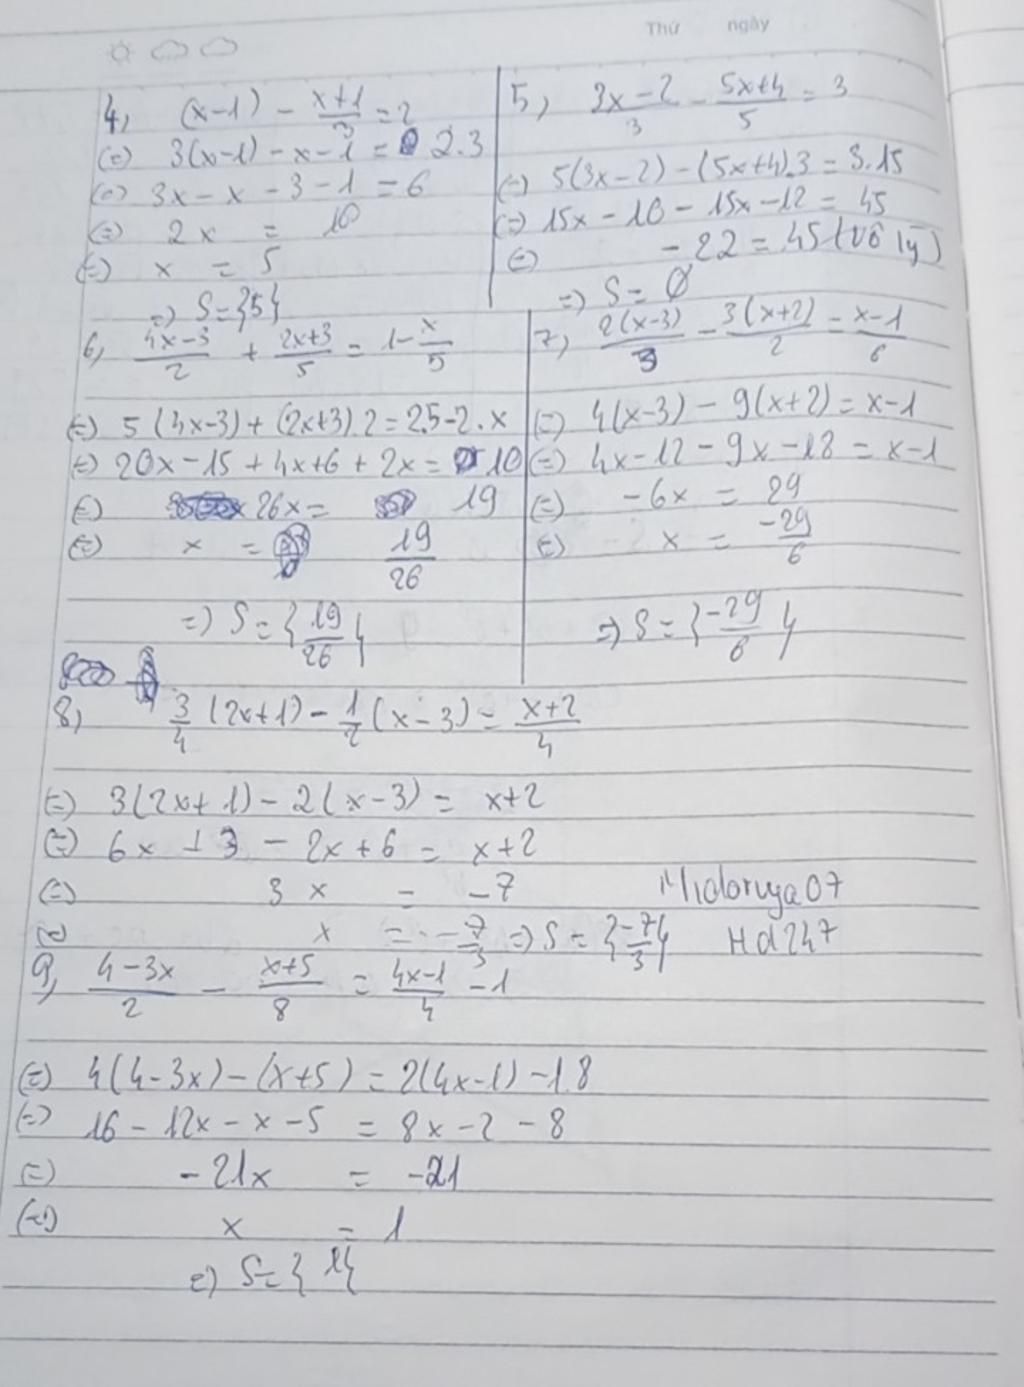 Thứ ngày
4, (x-1) - \frac{x+1}{3} = 2
(=) 3(x-1) - x - 1 = 2.3
(=) 3x - x - 3 - 1 = 6
(=) 2x = 10
(=) x = 5
=) S = {5}
5, \frac{3x-2}{3} - \frac{5x+4}{5} = 3
(=) 5(3x-2) - (5x+4).3 = 3.15
(=) 15x - 10 - 15x - 12 = 45
(=) -22 = 45 (vô lý)
=) S = ∅
6, \frac{4x-3}{2} + \frac{2x+3}{5} = 1 - \frac{x}{5}
(=) 5(4x-3) + (2x+3).2 = 2.5 - 2.x
(=) 20x - 15 + 4x + 6 + 2x = 10
(=) 26x = 19
(=) x = \frac{19}{26}
=) S = {\frac{19}{26}}
7, \frac{2(x-3)}{3} - \frac{3(x+2)}{2} = \frac{x-1}{6}
(=) 4(x-3) - 9(x+2) = x-1
(=) 4x - 12 - 9x - 18 = x - 1
(=) -6x = 29
(=) x = \frac{-29}{6}
=) S = {\frac{-29}{6}}
8, \frac{3}{4}(2x+1) - \frac{1}{2}(x-3) = \frac{x+2}{4}
(=) 3(2x+1) - 2(x-3) = x+2
(=) 6x + 3 - 2x + 6 = x+2
(=) 3x = -7
(=) x = -\frac{7}{3} =) S = {\frac{-7}{3}}
Midoruya07
Hd247
9, \frac{4-3x}{2} - \frac{x+5}{8} = \frac{4x-1}{4} - 1
(=) 4(4-3x) - (x+5) = 2(4x-1) - 1.8
(=) 16 - 12x - x - 5 = 8x - 2 - 8
(=) -21x = -21
(=) x = 1
=) S = {1}